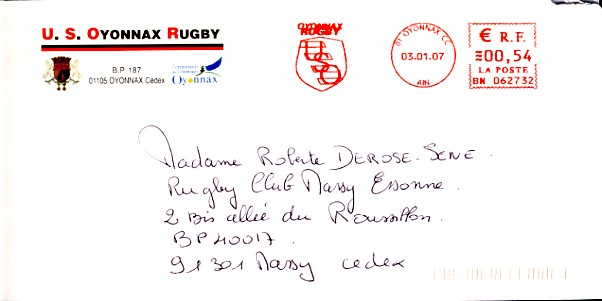 U. S. OYONNAX RUGBY
B.P. 187
01105 OYONNAX Cédex
Oyonnax
OYONNAX
RUGBY
USO
01 OYONNAX CC
03.01.07
AIN
€ R.F.
00,54
LA POSTE
BN 062732
Madame Roberte DEROSE-SENE.
Rugby Club Massy Essonne.
2 Bis allée du Roussillon.
BP 40017.
91301 Massy cedex